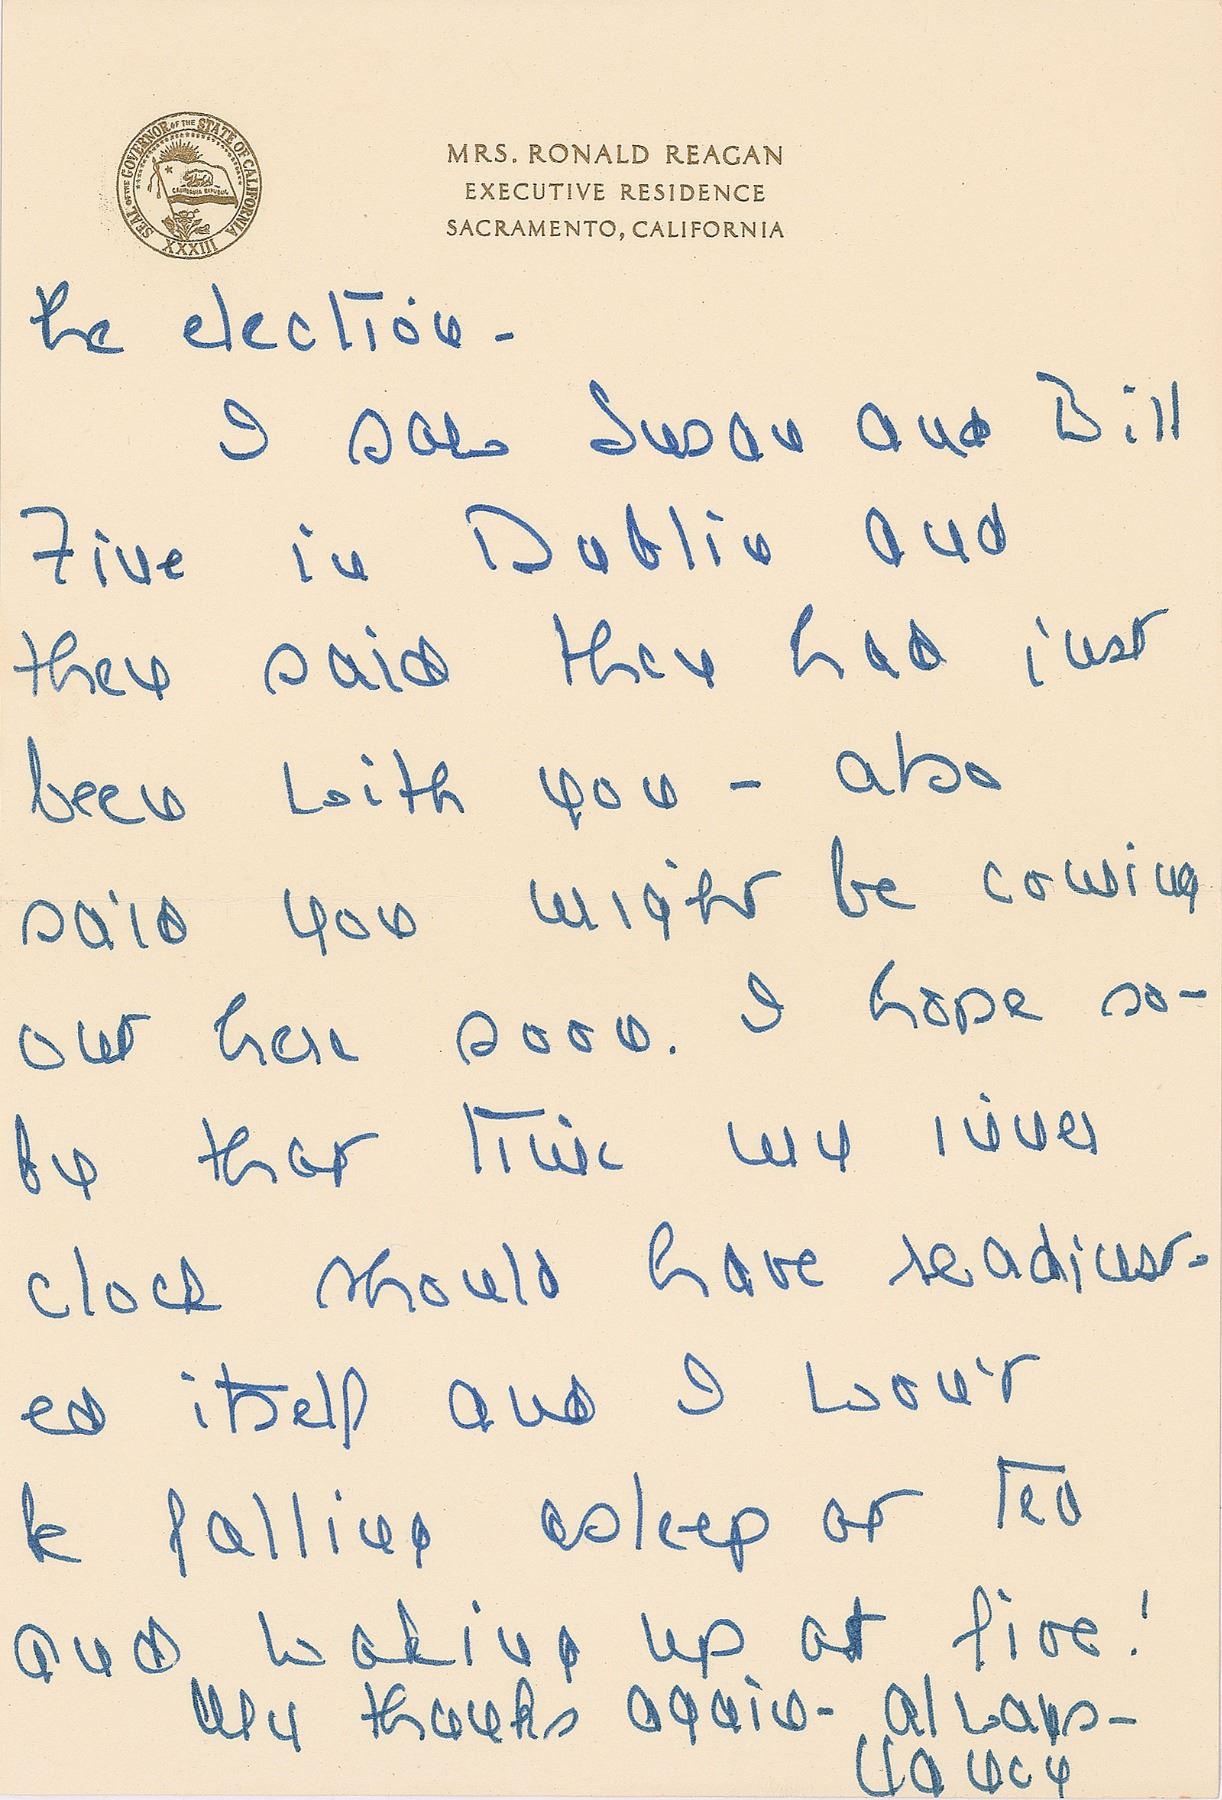 SEAL OF THE GOVERNOR OF THE STATE OF CALIFORNIA
CALIFORNIA REPUBLIC
XXXIII
MRS. RONALD REAGAN
EXECUTIVE RESIDENCE
SACRAMENTO, CALIFORNIA
the election -
I saw Susan and Bill
Fine in Dublin and
they said they had just
been with you - also
said you might be coming
out here soon. I hope so -
by that time my inner
clock should have readjust-
ed itself and I won't
be falling asleep at ten
and waking up at five!
My thanks again - always -
Nancy